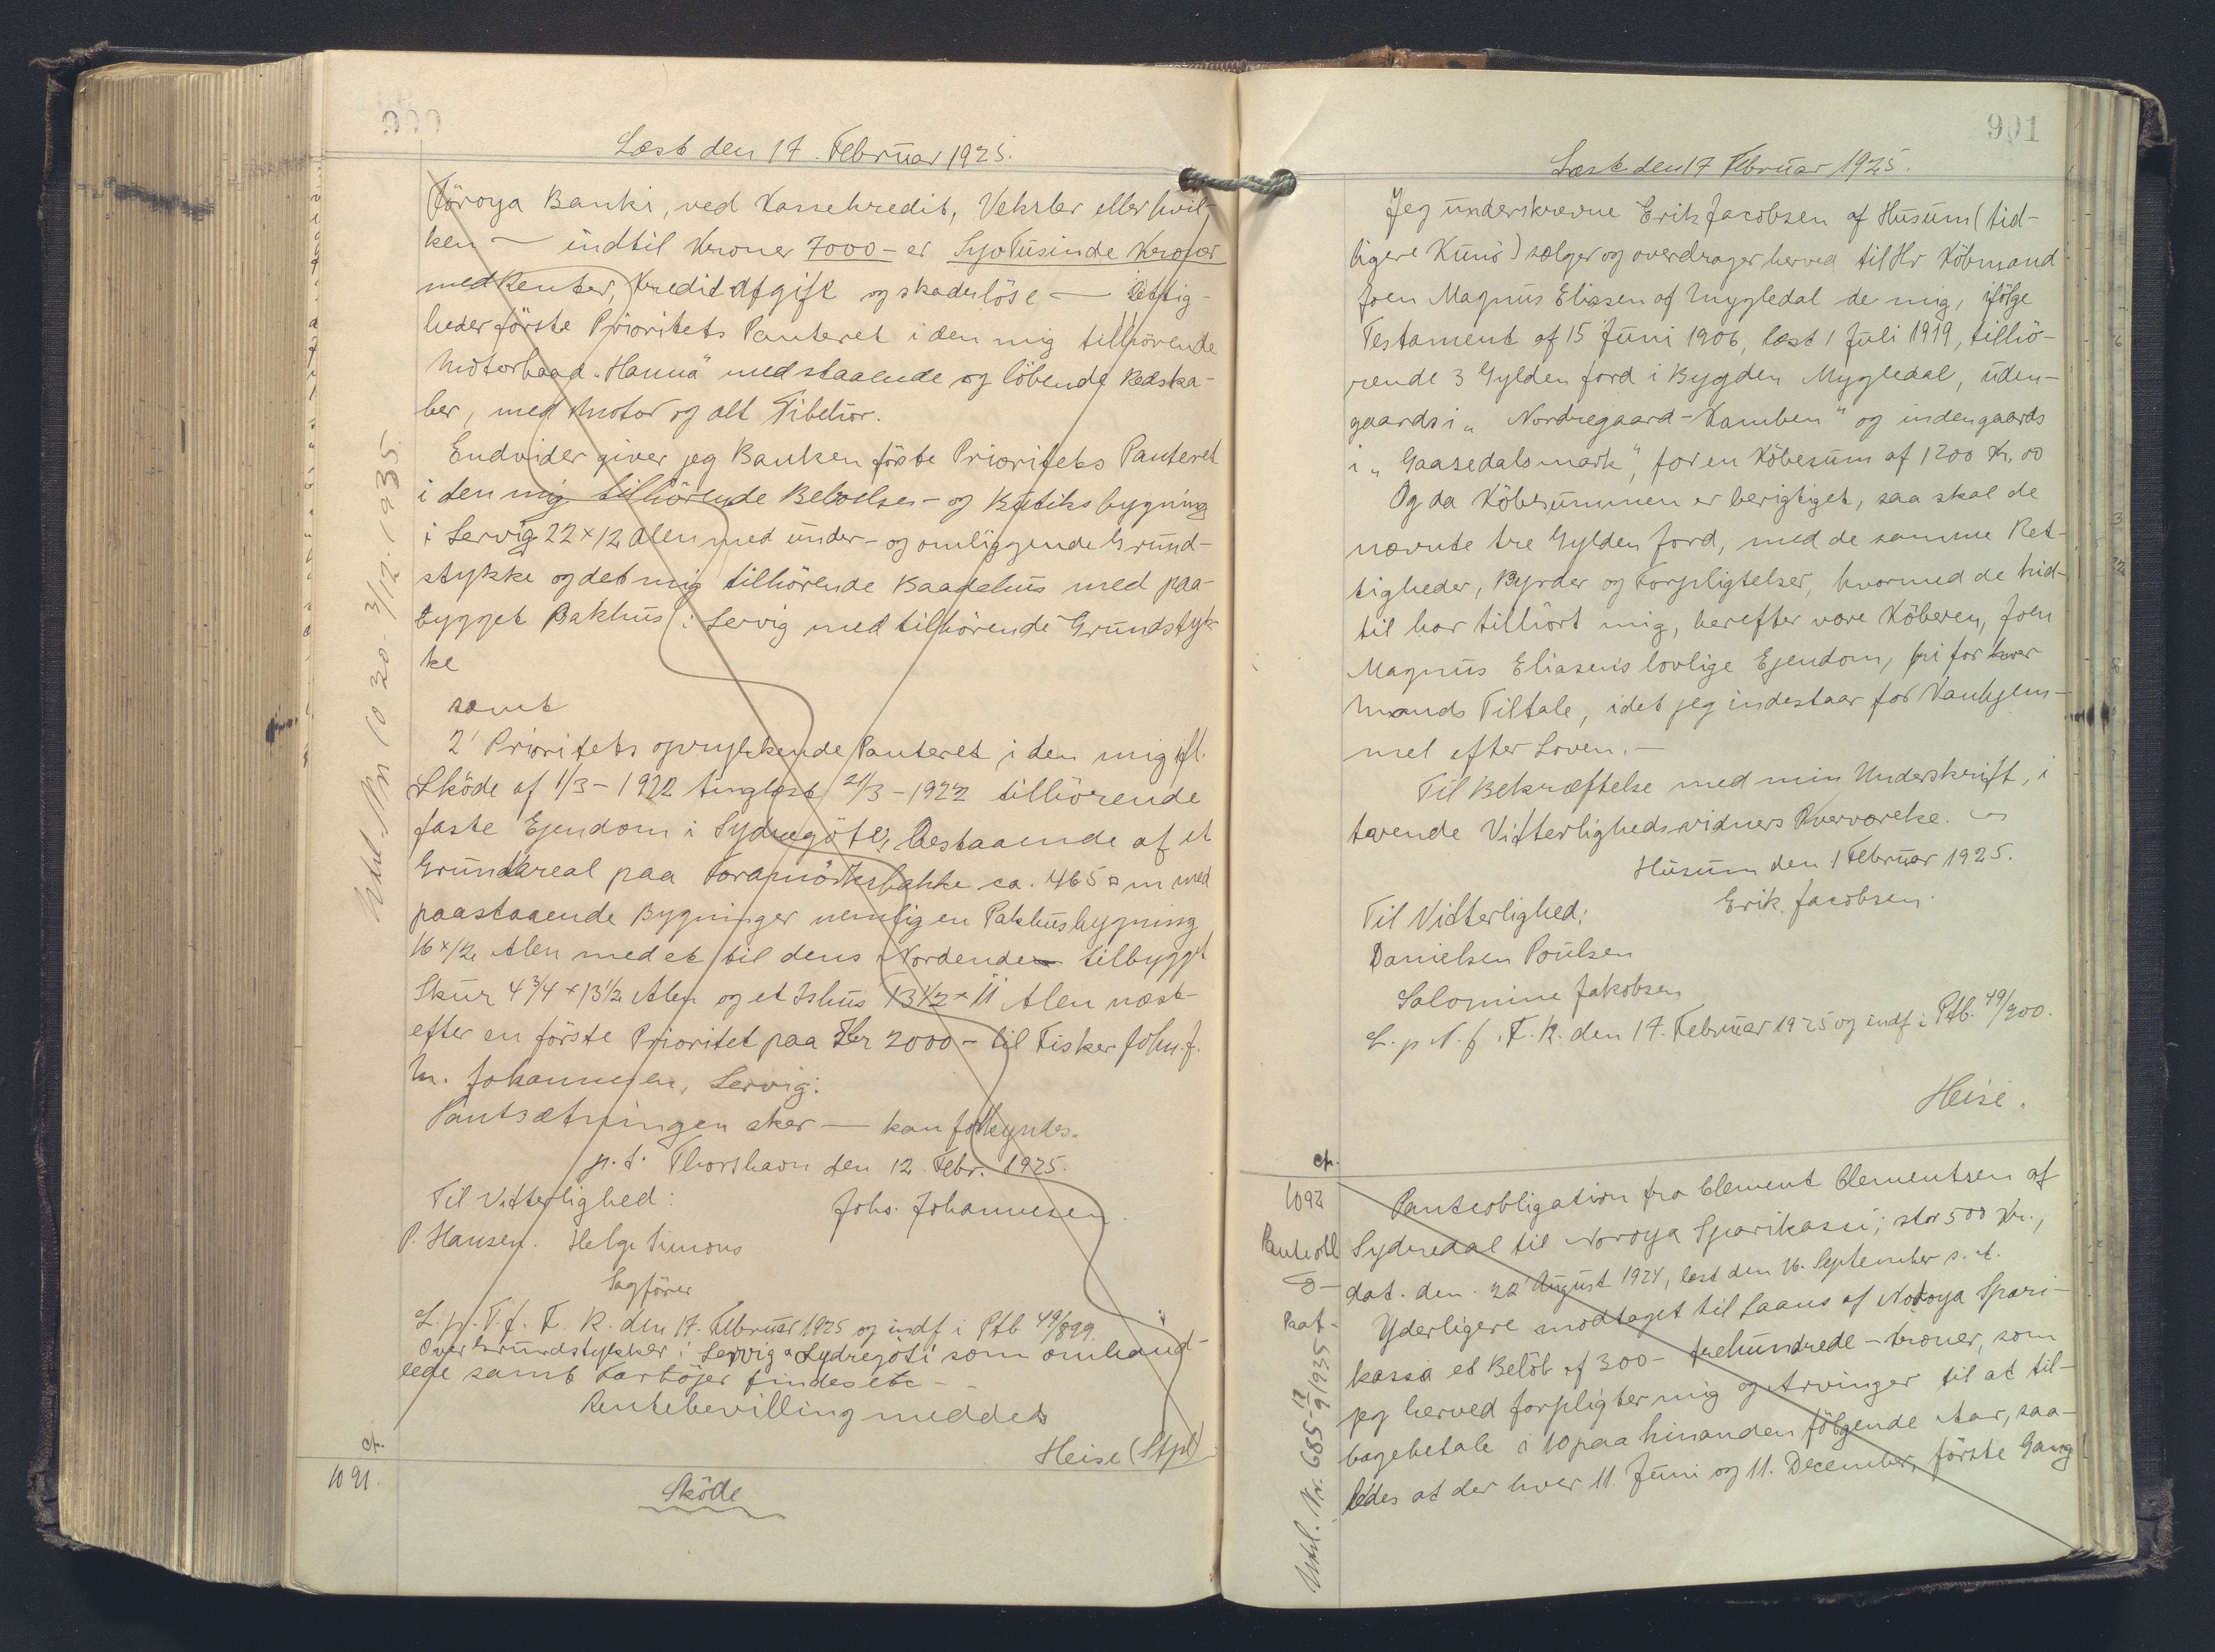 900
Læst den 17. Februar 1925.
Föroya Banki, ved Kassekredit, Veksler eller hvil-
ken — indtil Kroner 7000 - er Syv Tusinde Kroner
med Renter, Kredit Afgift og skadeslöse — lettig-
heder förste Prioritets Panteret i den mig tilhörende
Motorbaad "Hanna" med staaende og löbende Redska-
ber, med Motor og alt Tibehör.
Endvider giver jeg Banken förste Prioritets Panteret
i den mig tilhörende Beboelses- og Butiksbygning
i Servig 22 x 12 Alen med under- og omliggende Grund-
stykke og det mig tilhörende Baadehus med paa-
bygget Pakhus i Lervig med tilhörende Grundstyk-
ke
samt
2' Prioritets oprykkende Panteret i den mig ifl.
Sköde af 1/3 - 1922 tinglæst 21/3 - 1922 tilhörende
faste Ejendom i Sydregöte, bestaaende af et
Grundareal paa Toramörksbakke ca. 465 □ m med
paastaaende Bygninger nemlig en Pakhusbygning
16 x 12 Alen med et til dens Nordende tilbygget
Skur 4 3/4 x 13 1/2 Alen og et Ishus 13 1/2 x 11 Alen næst-
efter en förste Prioritet paa Kr 2000 - til Fisker Johs. J.
M. Johannesen, Lervig.
Pantsætningen sker — kan forkyndes.
p.t. Thorshavn den 12. Febr. 1925.
Til Vitterlighed: Johs. Johannesen.
P. Hansen. Helge Simons
Sagförer
L. p. T. f. F. R. den 17. Februar 1925 og indf i Ptb 49/899.
Over Grundstykker i Lervig & Sydregöti som omhand-
lede samt Fartöjer findes etc - -
Rentebevilling meddelt
Heise (Stpl)
Udsl. Nr 1020 3/12. 1935.
cfr.
1091. Sköde
901
Læst den 17 Februar 1925.
Jeg underskrevne Erik Jacobsen af Husum (tid-
ligere Kunö) sælger og overdrager herved til Hr Köbmand
Joen Magnus Eliasen af Mygledal de mig, ifölge
Testament af 15 Juni 1906, læst 1 Juli 1919, tilhö-
rende 3 Gylden Jord i Bygden Mygledal, uden-
gaards i "Nordregaard-Kamben" og indengaards
i "Gaasedalsmark", for en Köbesum af 1200 Kr. 00
Og da Köbesummen er berigtiget, saa skal de
nævnte tre Gylden Jord, med de samme Ret-
tigheder, Byrder og Forpligtelser, hvormed de hid-
til har tilhört mig, herefter være Köberen, Joen
Magnus Eliasens lovlige Ejendom, fri for hver
Mands Tiltale, idet jeg indestaar for Vanhjem-
mel efter Loven. -
Til Bekræftelse med min Underskrift, i
tvende Vitterlighedsvidners Overværelse.
Husum den 1 Februar 1925.
Til Vitterlighed: Erik Jacobsen.
Danielsen Poulsen
Salomine Jakobsen
L. p. T. f. F. R. den 17. Februar 1925 og indf i Ptb. 49/900.
Heise.
cfr.
1092
Panteobl
Paat-
Udsl. Nr. 685 - 17/9 1935
Panteobligation fra Clement Clementsen af
Sydredal til Noroya Sparikassi; stor 500 Kr.,
dat. den 22' August 1924, læst den 16. September s. A.
Yderligere modtaget til Laans af Noroya Spari-
kassa et Belöb af 300 - trehundrede - Kroner, som
jeg herved forpligter mig og Arvinger til at til-
bagebetale i 10 paa hinanden fölgende Aar, saa-
ledes at der hver 11. Juni og 11. December, förste Gang